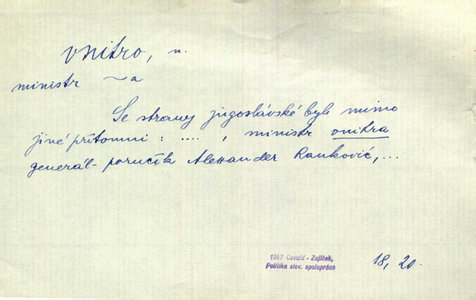 vnitro, n.
ministr ~a
Se strany jugoslávské byli mimo
jiné přítomni : .... i ministr vnitra
generál-poručík Alessander Ranković,...
1947 Osvald - Zajíček,
Politika slov. spolupráce
18, 20.